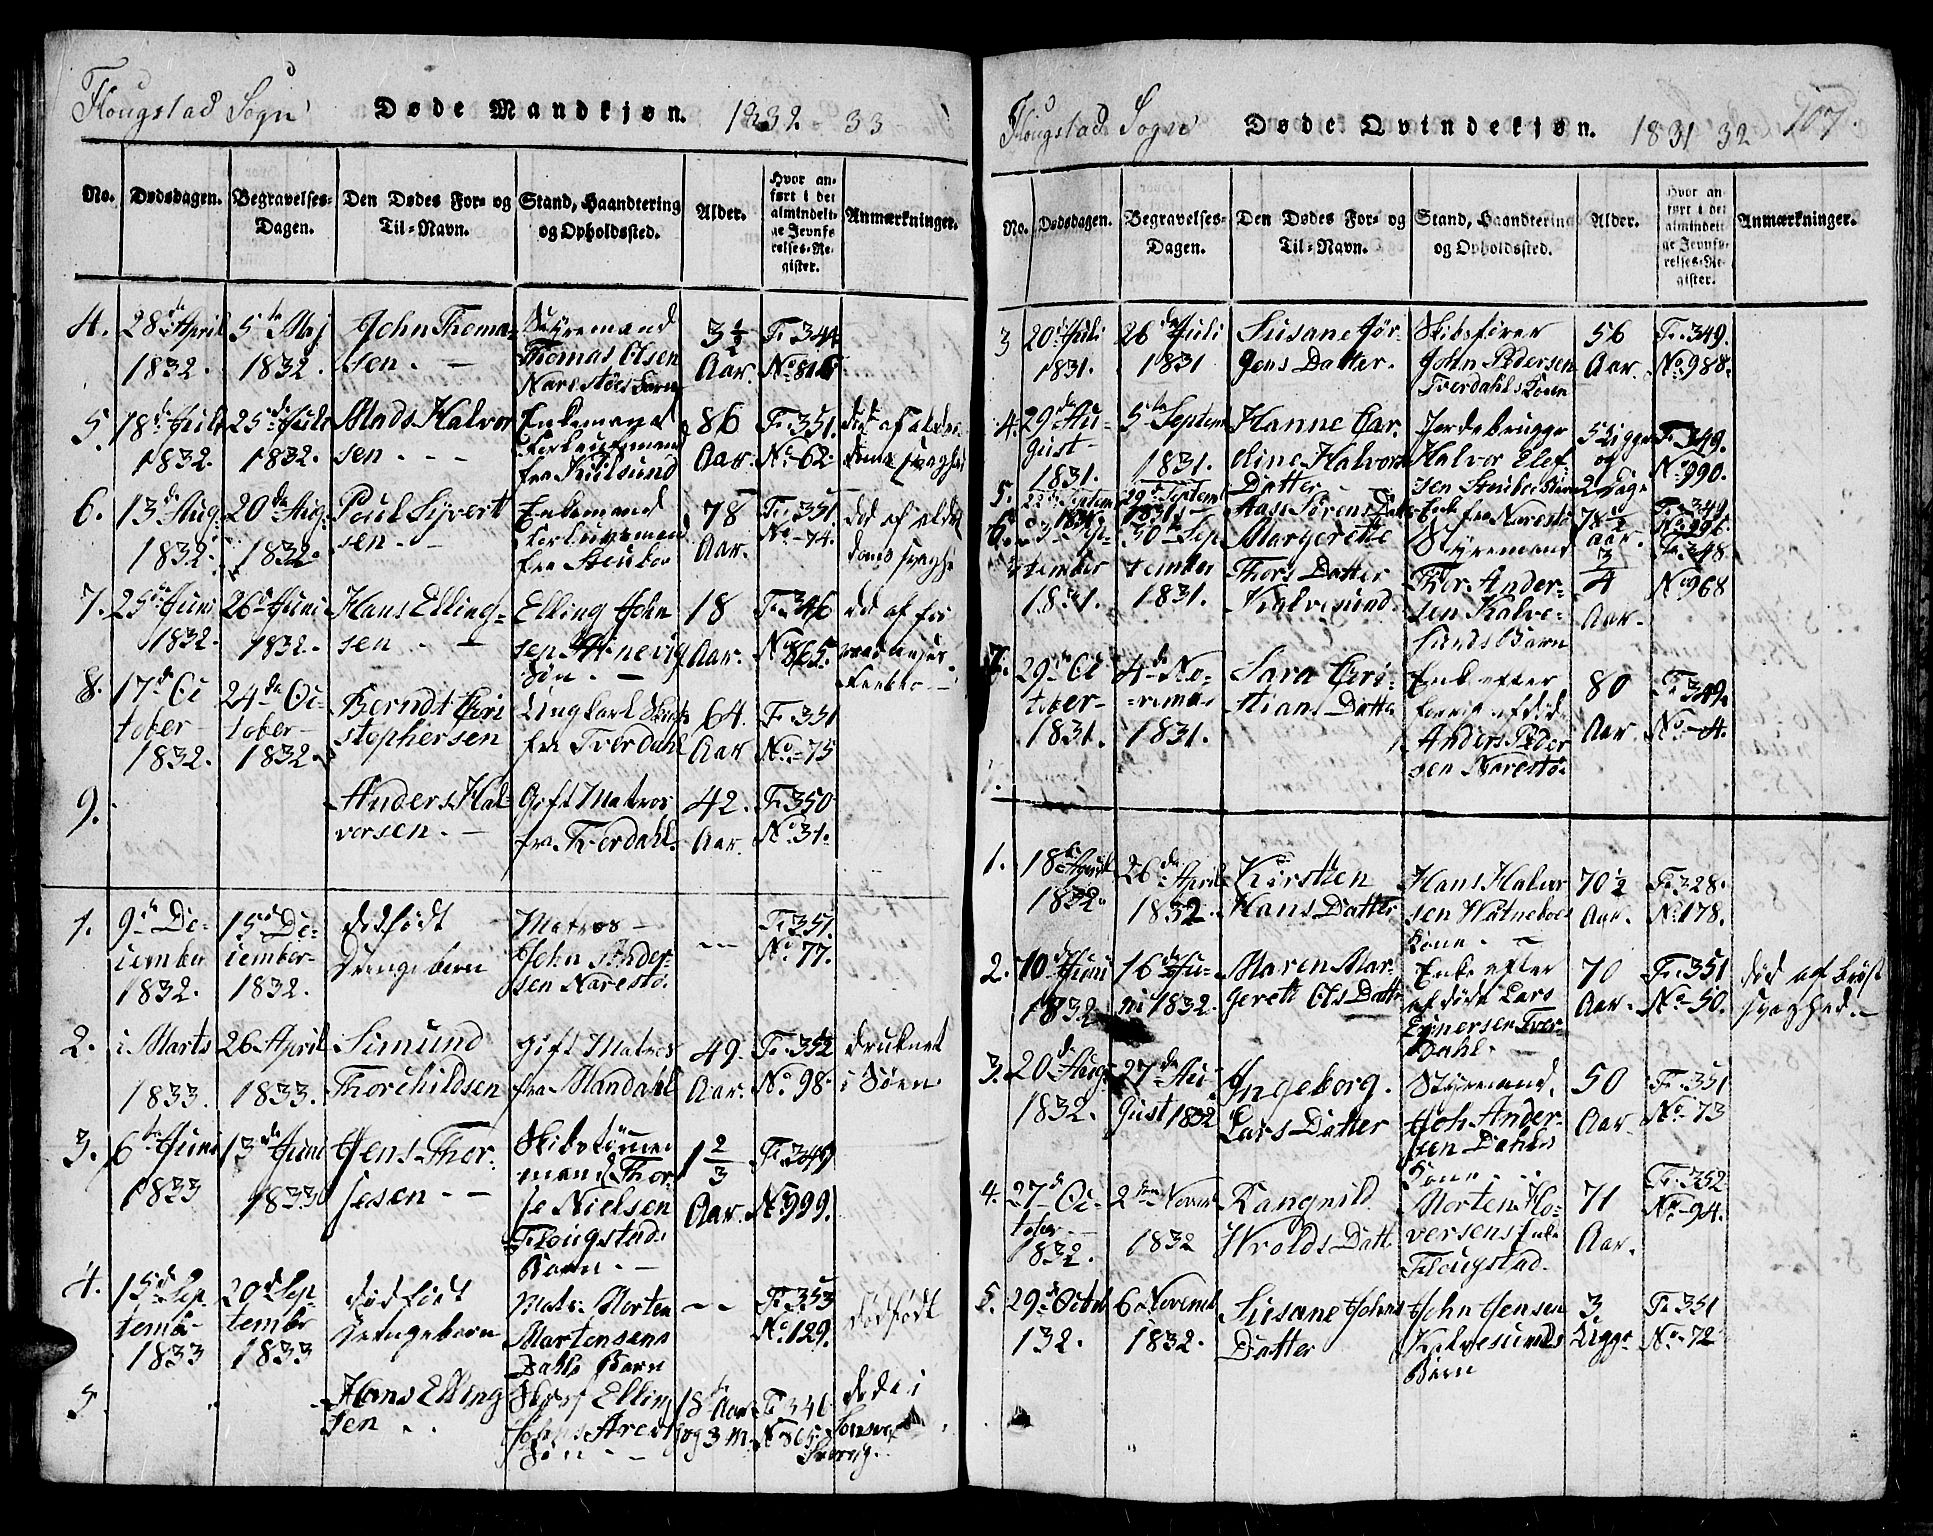 Flougstad Sogn
Døde Mandkjøn.
1832 - 33
No.
Dødsdagen.
Begravelses-
Dagen.
Den Dødes For- og
Til-Navn.
Stand, Haandtering
og Opholdssted.
Alder.
Hvor an-
ført i det
almindeli-
ge Jevnfø-
relses-Re-
gister.
Anmærkninger.
4.
28de April
1832.
5te Maj
1832.
John Thoma-
sen. -
Styremand
Thomas Olsen
Narestøe
3½
Aar.
F. 344
No 816
5.
18de Juli
1832.
25de Juli
1832.
Mads Halvor
sen. - -
Enkemand
fra Kiilsund
86
Aar.
F. 351.
No - 62.
død af alder
6.
13de Aug.
1832.
20de Aug.
1832.
Poul Syvert
sen. -
Enkemand
fra
78
Aar.
F. 351.
No - 74.
død af alder
doms svaghe
7.
25de Juni
1832.
26de Juni
1832.
Hans Elling-
sen. -
Elling John
sen Arnevig
Søn. -
18
Aar.
F. 346
No 865.
død af
8.
17de Oc
tober
1832.
24de Oc-
tober-
1832.
Berndt Chri
stophersen
Ungkarl
fra Tverdahl
64.
Aar
F. 351
No - 75
9.
Anders Hal-
vorsen. -
Gift Matros
fra Tverdahl.
42.
Aar.
F. 350
No 31.
1.
9de De-
cember
1832.
15de De-
cember-
1832.
dødfødt
Drengebarn
Matros -
John Ander-
sen Narestø.
- -
F. 351.
No 77.
2.
i Marts
1833.
26 April
1833.
Simund
Thorchildsen
Gift Matros
fra Mandahl
49.
Aar.
F. 352
No 98.
druknet
i Søen
3.
6te Juni
1833
13de Juni
1833
Jens Thor-
jesen - -
Skibstømmer
mand Thor-
je Nielsen
Flougstad.
Barn. -
1 2/3
Aar.
F. 349
No 999.
4.
15de Sep-
tembr-
1833
20de Sep-
tembr
1833
dødfødt
Drengebarn
Matr. Morten
Martensens
Dahls Barn
- -
F. 353
No 129.
dødfødt
5
Hans Elling
sen
Elling
Søn - -
18 Aar
og 3 M.
F. 346
No 865.
døde i
Flougstad Sogn
Døde Qvindekjøn.
1831 32
107.
No.
Dødsdagen.
Begravelses-
Dagen.
Den Dødes For- og
Til-Navn.
Stand, Haandtering
og Opholdssted.
Alder.
Hvor an-
ført i det
almindeli-
ge Jevnfø-
relses-Re-
gister.
Anmærkninger.
3
20de Juli
1831.
26de Juli
1831
Susane Jør-
gens Datter.
Skibsfører
John Pedersen
Tverdahls Kone
56
Aar.
F. 349.
No 988.
4.
29de Au-
gust-
1831.
5te Septem
1831.
Hanne Car.
oline Halvors
Datter
Jordebrugger
Halvor Elef-
sen
5 Uger
og
2 Dage
F. 349.
No 990.
5.
29de Septem
1831.
Aase Sørens Datter
Enke fra Narestø
78½
Aar.
F. 349
6.
Sep-
tember
1831.
30te Sep
tember
1831.
Margerethe
Thors Datter
Kalvesund.
Styremand
Thor Ander-
sen Kalve-
sunds Barn
3/4
Aar.
F. 348
No 968
7.
29de Oc
tober-
1831.
4de No-
vemb-
1831.
Sara Chri-
stians Datter
Enke efter
Anders Peder
sen Narestø.
80
Aar.
F. 349.
No - 4.
1.
18de April
1832.
26de April
1832.
Kirstien
Hans Datter
Hans Halvor
sen
Kone. -
70½
Aar.
F. 328.
No 178.
2.
10de Juni
1832
16de Ju-
ni 1832.
Maren Mar-
gerete Ols Datter
Enke efter
afdøde Lars
Tver-
Dahl.
70
Aar.
F. 351
No - 50.
død af bryst
svaghed. -
3.
20de Aug.
1832.
27de Au-
gust 1832
Ingeborg.
Lars Datter
Styremand.
Joh Ander-
sen Dahls
Kone. -
50
Aar.
F. 351
No - 73
4.
27de Oc-
tober -
1832.
2den Novem
1832
Rangnild.
Wrolds Datt.
Morten Ho-
versens Enke
Flougstad.
71
Aar.
F. 352
No - 94.
5.
29de Octob
132.
6 Novemb
1832.
Susane Johns
Datter
John Jensen
Kalvesunds
Barn
3.
Ugge
F. 351
No - 72